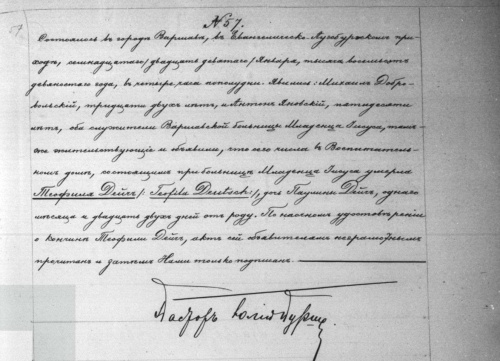 57
№ 57.
Состоялось въ городѣ Варшавѣ, въ Евангелическо-Аугсбургскомъ при-
ходѣ, семнадцатаго /двадцать девятаго/ Января, тысяча восемьсотъ
девяностаго года, въ четыре часа пополудни. Явились: Михаилъ Добро-
вольскій, тридцати двухъ лѣтъ, и Антонъ Яновскій, пятидесяти
лѣтъ, оба служители Варшавской больницы Младенца Іисуса, тамъ-
же жительствующіе и объявили, что сего числа въ Воспитатель-
номъ домѣ, состоящимъ при больницѣ Младенца Іисуса умерла
Теофила Дейчъ /: Teofila Deutsch :/, дочь Паулины Дейчъ, одного
мѣсяца и двадцати двухъ дней отъ роду. По наочномъ удостовѣреніи
о кончинѣ Теофили Дейчъ, актъ сей объявителямъ неграмотнымъ
прочитанъ и затѣмъ Нами только подписанъ.
Пасторъ